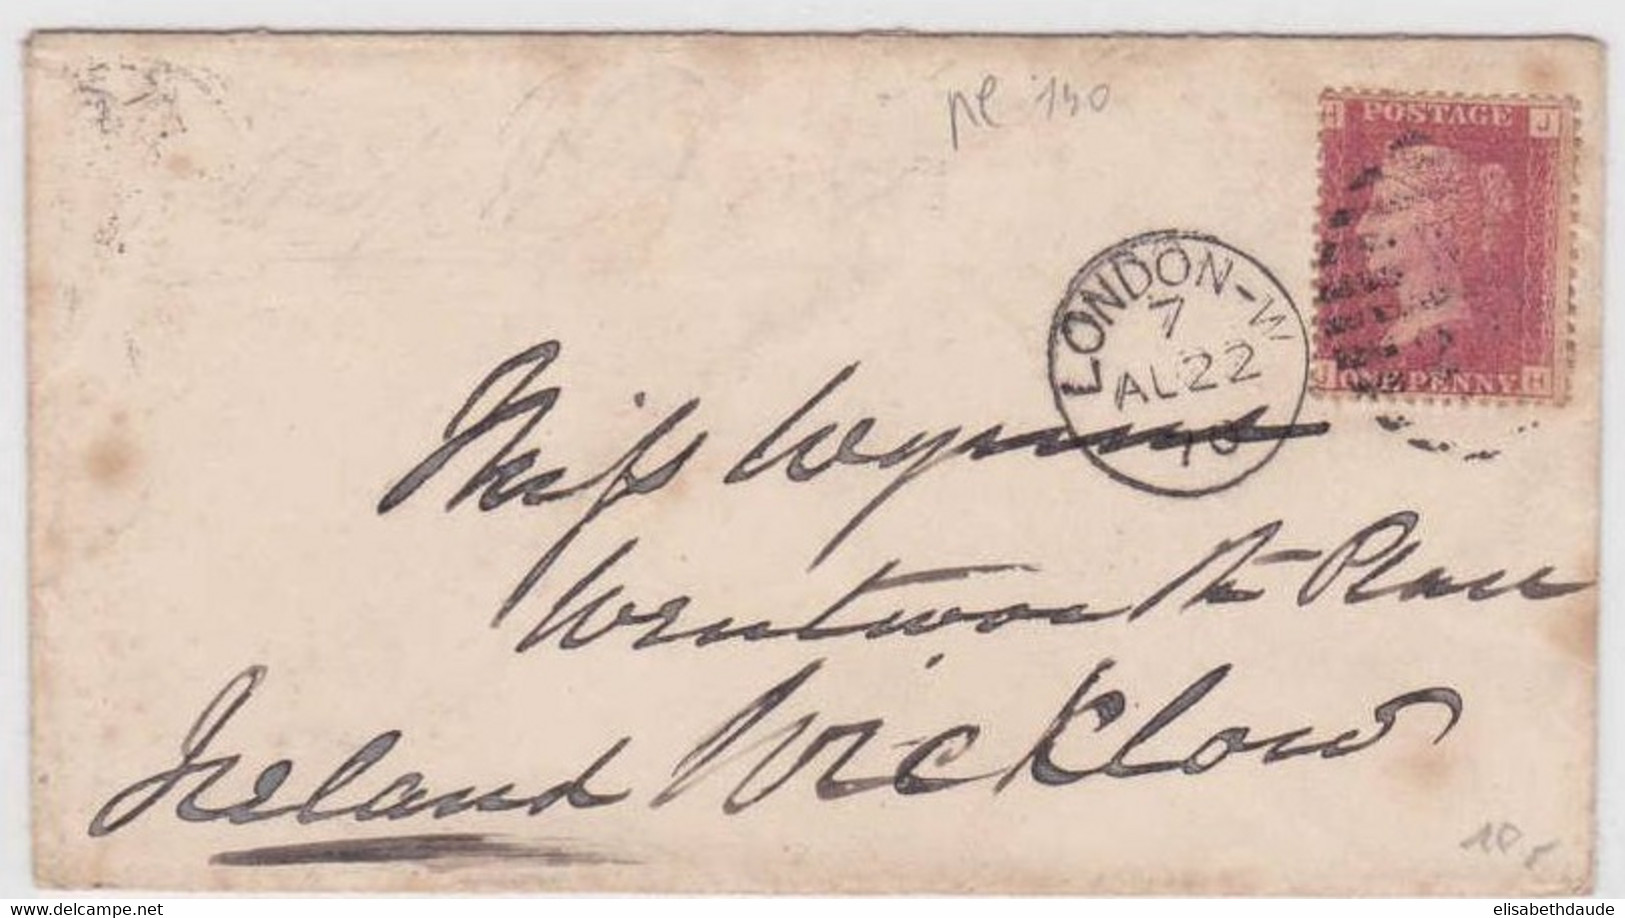 pl 140
J POSTAGE J
J ONE PENNY H
LONDON-W
7
AL22
70
Miss Wynne
Wentworth Place
Wicklow
Ireland
10 €
www.delcampe.net
elisabethdaude